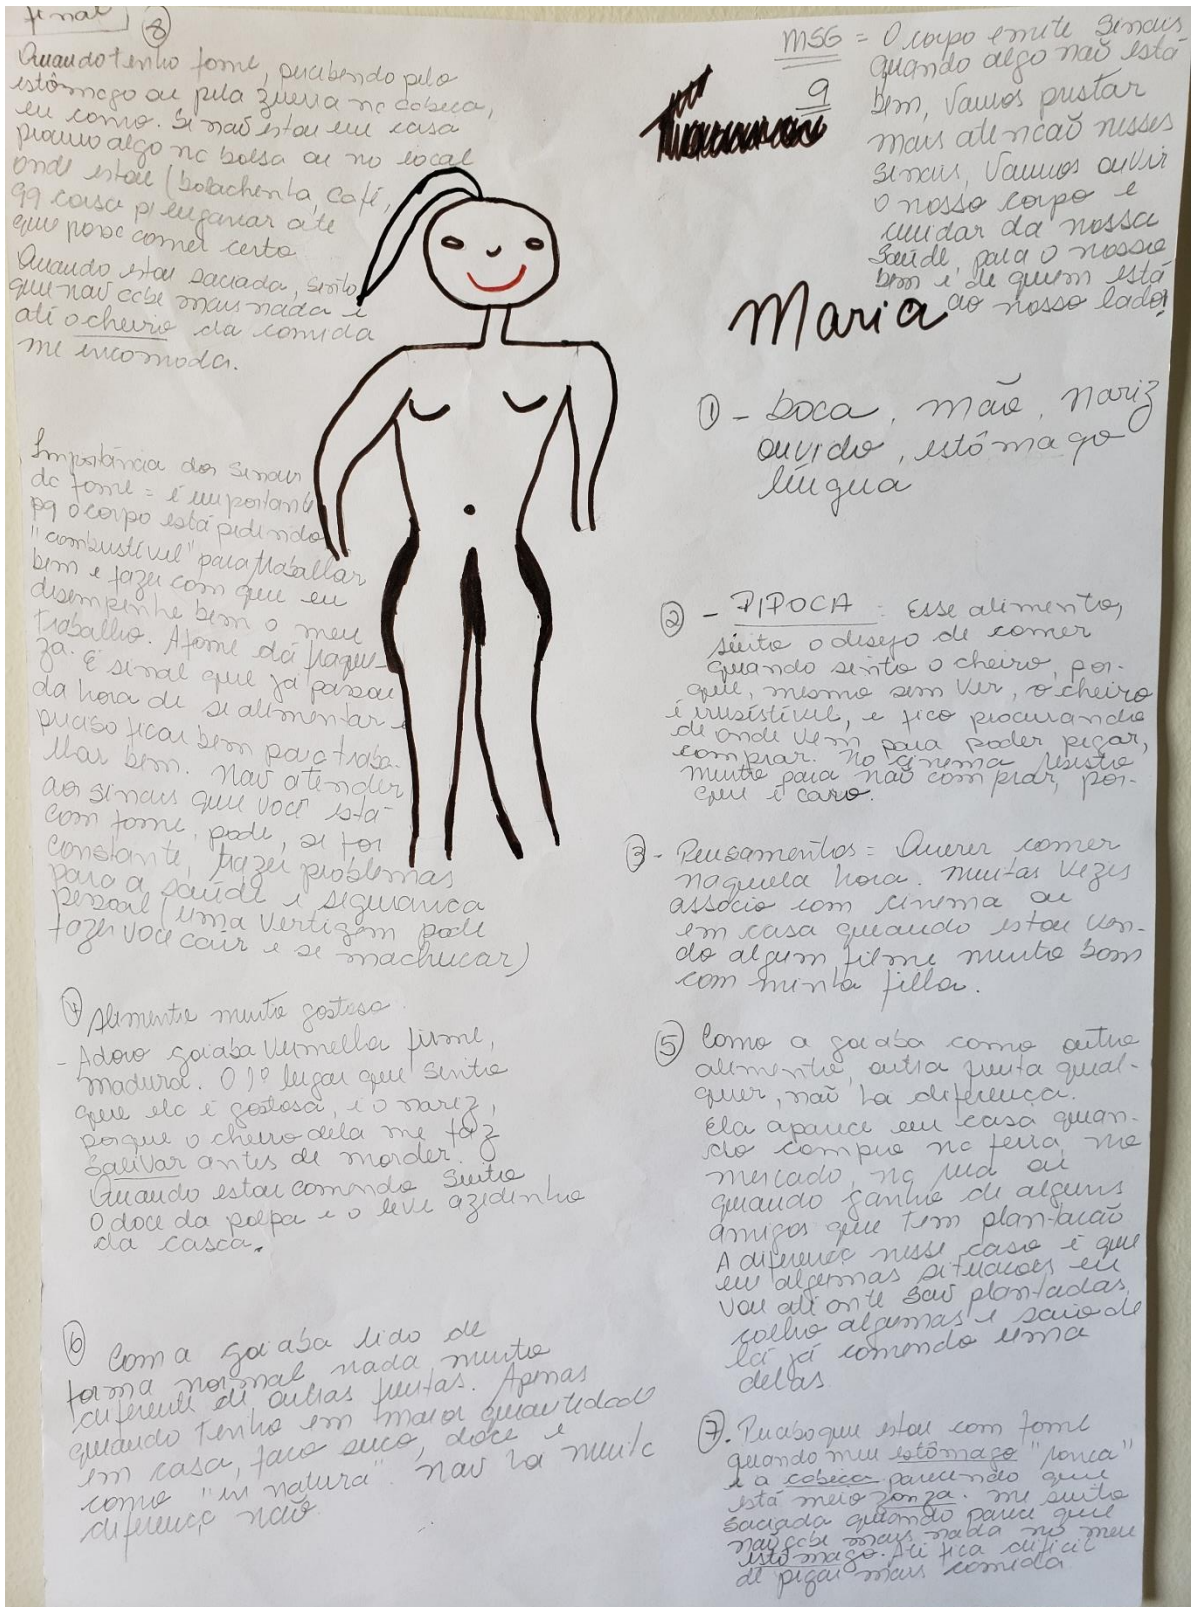 final
8
Quando tenho fome, percebendo pelo
estômago ou pela zueira na cabeça,
eu como. Se não estou em casa
procuro algo na bolsa ou no local
onde estou (bolachenta, café,
qq coisa p/ enganar até
que possa comer certo
Quando estou saciada, sinto
que não cabe mais nada e
até o cheiro da comida
me incomoda.
Importância dos sinais
da fome = é importante
pq o corpo está pedindo
"combustível" para trabalhar
bem e fazer com que eu
desempenhe bem o meu
trabalho. A fome dá fraque-
za. É sinal que já passou
da hora de se alimentar e
preciso ficar bem para traba-
lhar bem. Não atender
aos sinais que você está
com fome, pode, se for
constante, trazer problemas
para a saúde e segurança
pessoal (uma vertigem pode
fazer você cair e se machucar)
4 Alimento muito gostoso.
- Adoro goiaba vermelha firme,
madura. O 1º lugar que sinto
que ela é gostosa, é o nariz,
porque o cheiro dela me faz
salivar antes de morder.
Quando estou comendo sinto
o doce da polpa e o leve azedinho
da casca.
6 Com a goiaba lido de
forma normal nada muito
diferente de outras frutas. Apenas
quando tenho em maior quantidade
em casa, faço suco, doce e
como "in natura". Não há muita
diferença não
MSG = O corpo emite sinais
quando algo não está
bem, vamos prestar
mais atenção nesses
sinais, vamos ouvir
o nosso corpo e
cuidar da nossa
saúde, para o nosso
bem e de quem está
ao nosso lado!
9
Maria
1 - boca, mão, nariz
ouvido, estômago
língua
2 - PIPOCA : Esse alimento,
sinto o desejo de comer
quando sinto o cheiro, por-
que, mesmo sem ver, o cheiro
é irresistível, e fico procurando
de onde vem para poder pegar,
comprar. No cinema resisto
muito para não comprar, por-
que é caro.
3 - Pensamentos = Querer comer
naquela hora. Muitas vezes
associo com cinema ou
em casa quando estou ven-
do algum filme muito bom
com minha filha.
5 Como a goiaba como outro
alimento, outra fruta qual-
quer, não há diferença.
Ela aparece em casa quan-
do compro na feira, no
mercado, na rua ou
quando ganho de alguns
amigos que tem plantação
A diferença nesse caso é que
em algumas situações eu
vou até onde são plantadas,
colho algumas e saio de
lá já comendo uma
delas
7. Percebo que estou com fome
quando meu estômago "ronca"
e a cabeça parecendo que
está meio zonza. Me sinto
saciada quando parece que
não cabe mais nada no meu
estômago. Até fica difícil
de pegar mais comida